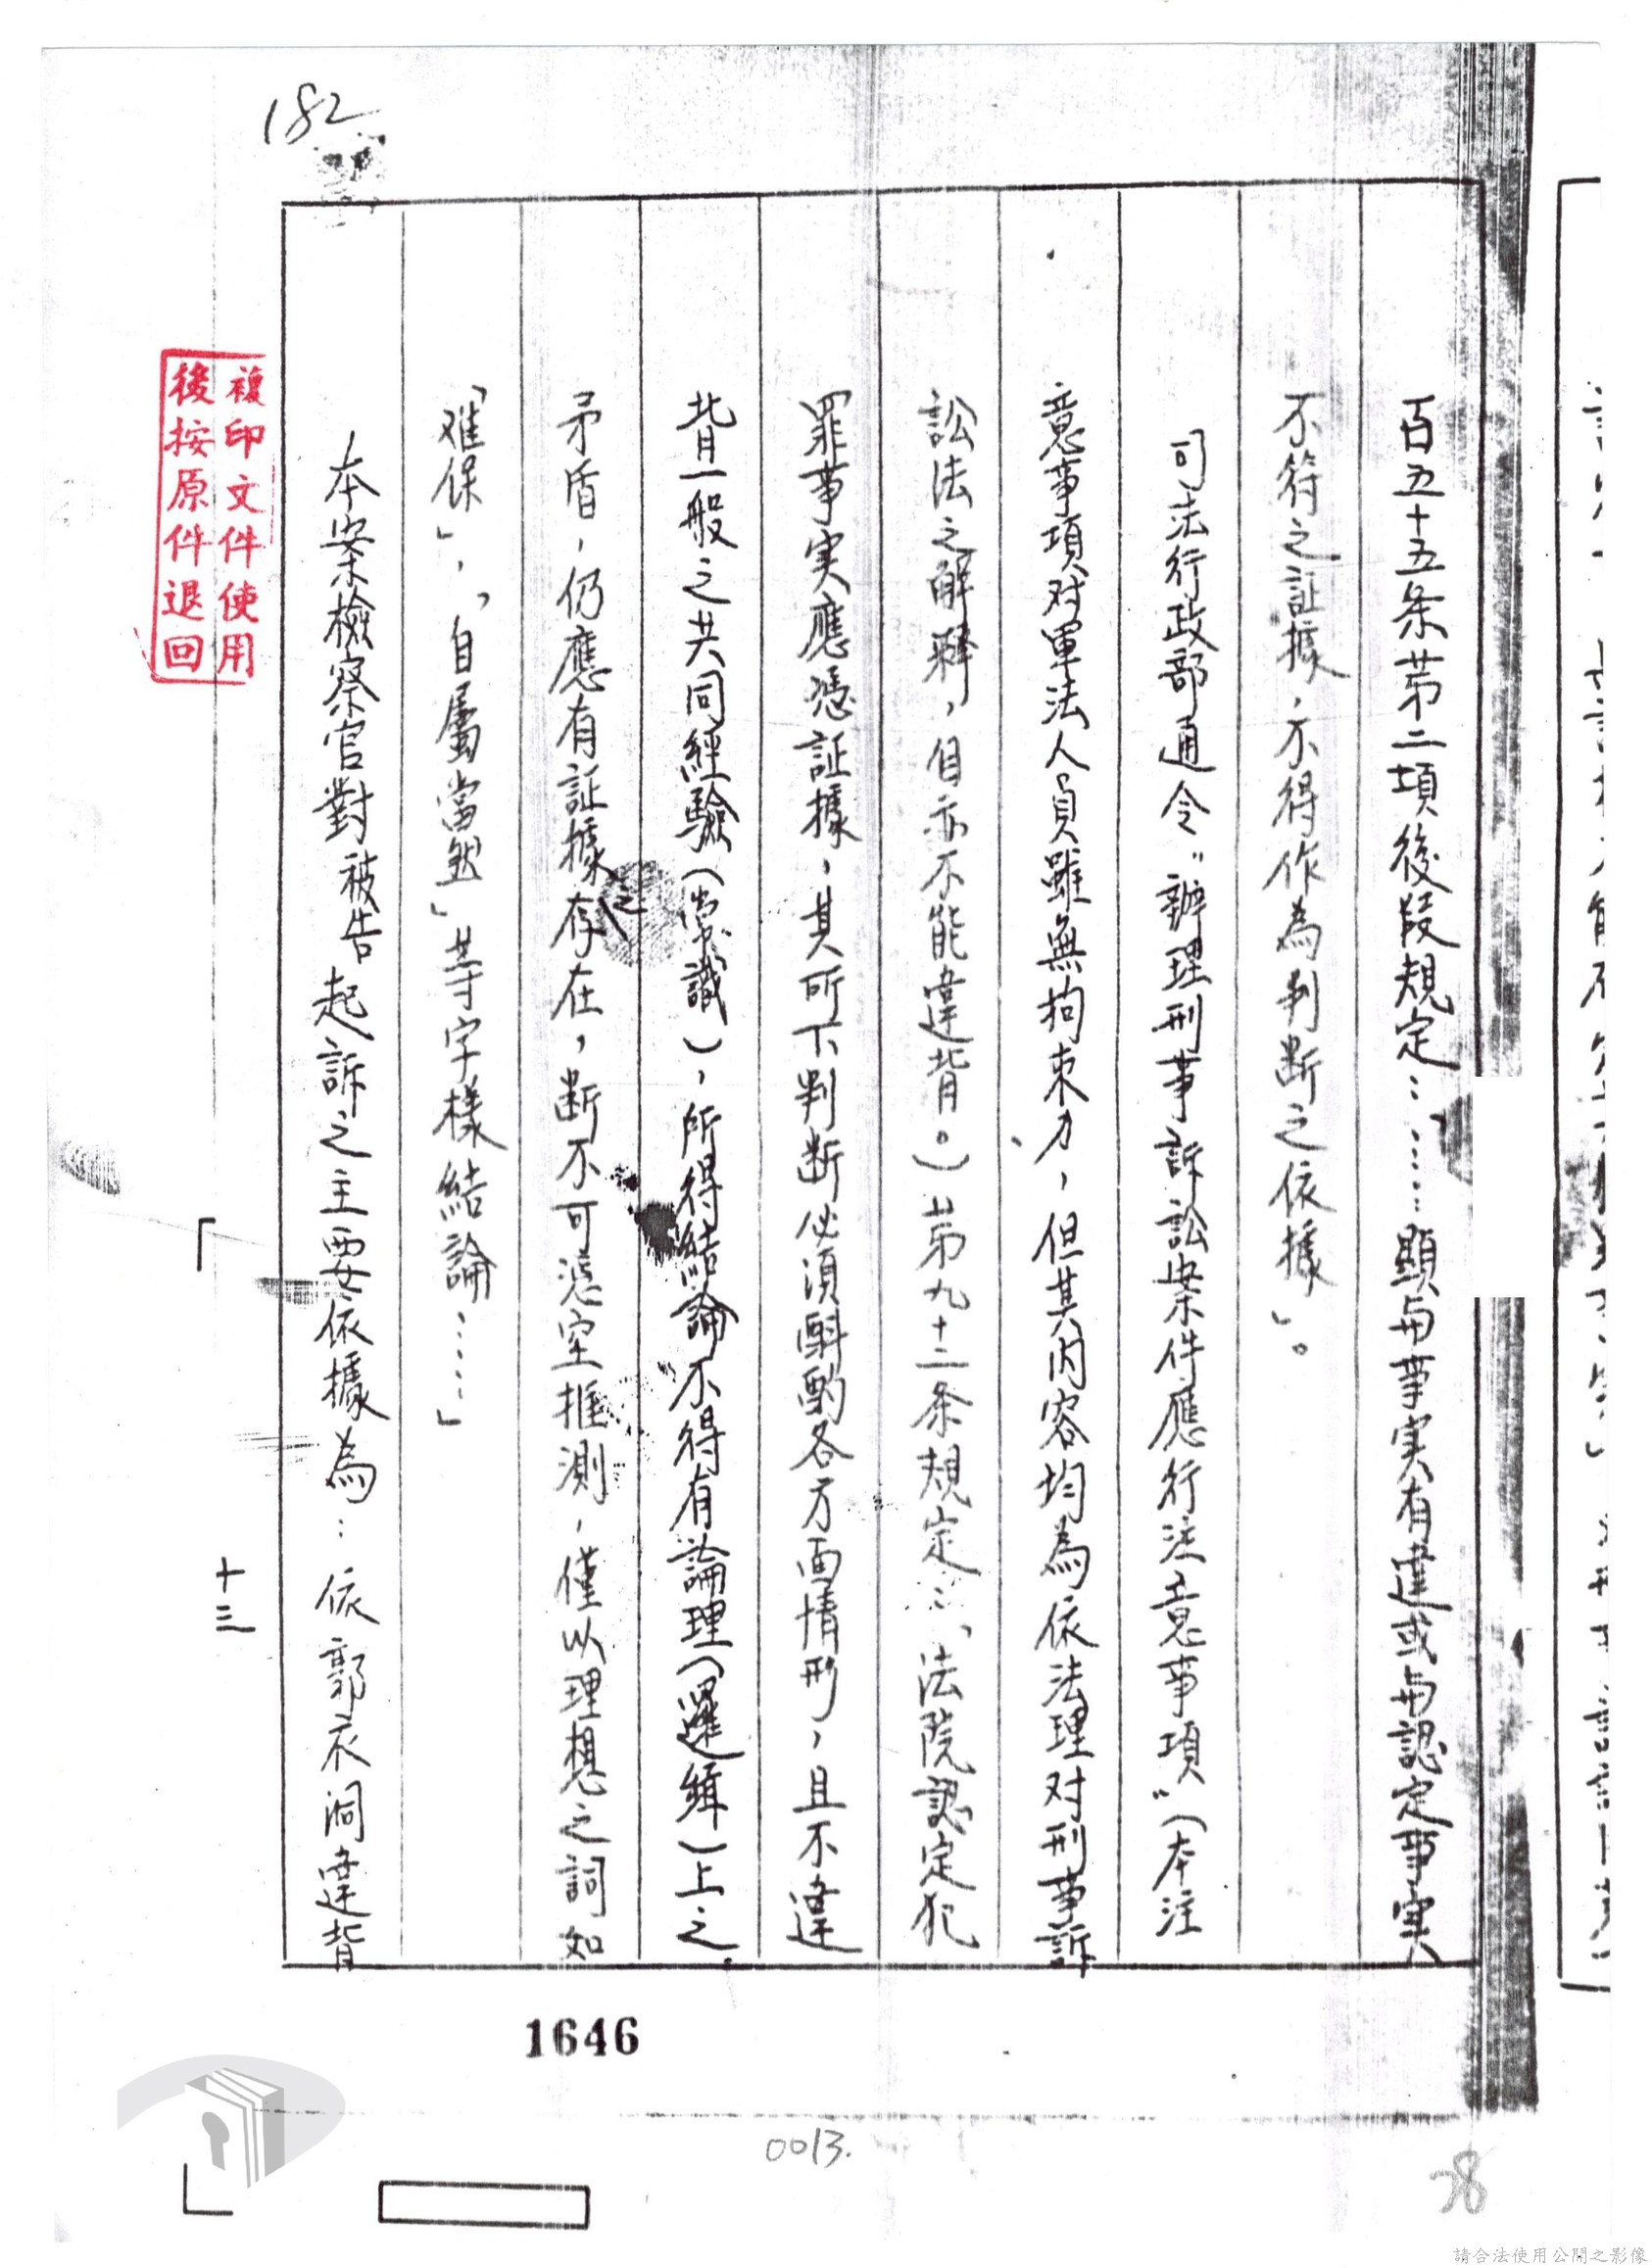 182
百五十五条苐二項後段規定：……顕与事実有違或与認定事実
不符之証據，不得作為判断之依據」。
司法行政部通令〝辦理刑事訴訟案件應行注意事項〞（本注
意事項对軍法人員雖無拘束力，但其内容均為依法理对刑事訴
訟法之解釋，自亦不能違背。）苐九十二条規定：「法院認定犯
罪事実應憑証據，其所下判断必須斟酌各方面情形，且不違
背一般之共同經驗（常識），所得結論不得有論理（邏緝）上之
矛盾，仍應有証據之存在，断不可憑空推測，僅以理想之詞如
「难保」，「自屬當然」等字樣結論……」
本案檢察官對被告起訴之主要依據為：依郭衣洞違背
十三
複印文件使用
後按原件退回
1646
0013.
28
請合法使用公開之影像